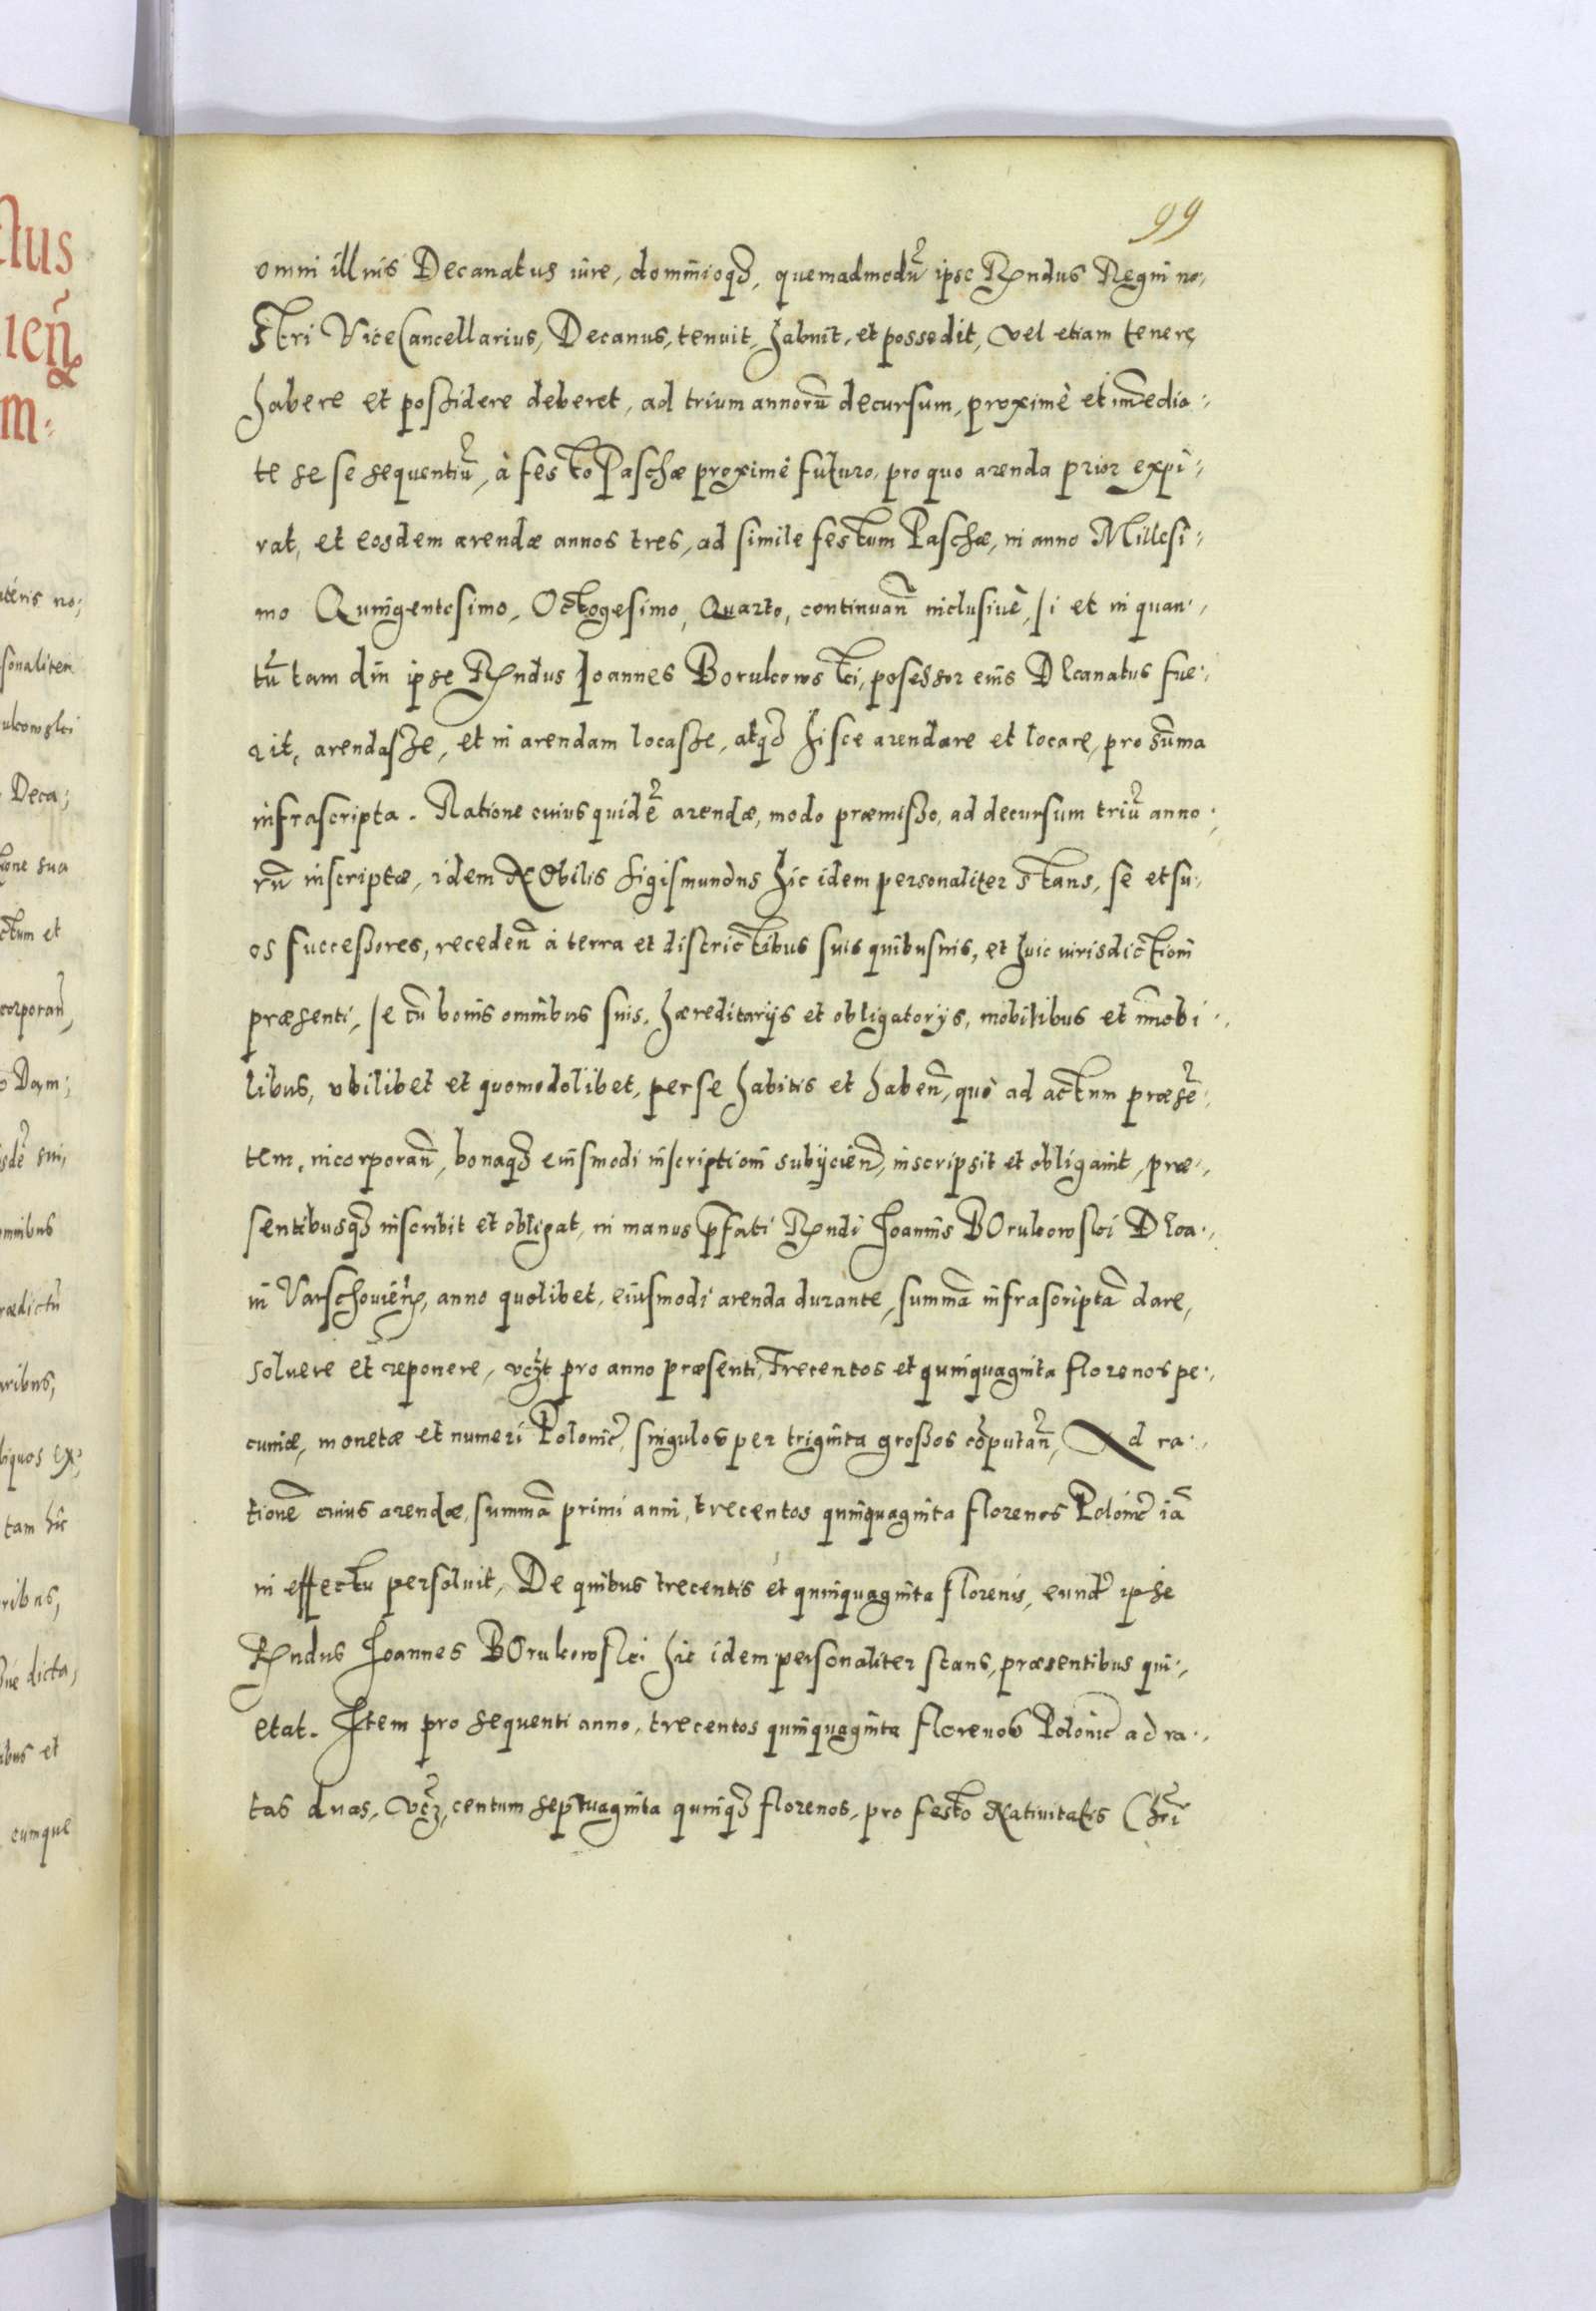 99
omni illius Decanatus iure, dominioqʒ, quemadmodū ipse Rn̄dus Regni no:
stri ViceCancellarius, Decanus, tenuit, habuit, et possedit, vel etiam tenere,
habere et possidere deberet, ad trium annorū decursum, proximè et im̄edia:
te se se sequentiū, à festo Paschæ proximè futuro, pro quo arenda prior expi:
rat, et eosdem arendæ annos tres, ad simile festum Paschæ, in anno Millesi:
mo Quingentesimo, Octogesimo, Quarto, continuan̄ inclusiuè, si et in quan:
tū tam diu ipse Rn̄dus Joannes Borukowski, posessor eius Decanatus fue:
rit, arendasse, et in arendam locasse, atqʒ hisce arendare et locare, pro sūma
infrascripta. Ratione cuius quidē arendæ, modo præmisso, ad decursum triū anno:
rū inscriptæ, idem Nobilis Sigismundus hic idem personaliter stans, se et su:
os successores, receden̄ à terra et districtibus suis quibusuis, et huic iurisdictioni
præsenti, se cū bonis omnibus suis, hæreditarijs et obligatorijs, mobilibus et im̄obi:
libus, vbilibet et quomodolibet, per se habitis et haben̄, quò ad actum præsē:
tem, incorporan̄, bonaqʒ eiusmodi inscriptioni subijcien̄, inscripsit et obligauit, præ:
sentibusqʒ inscribit et obligat, in manus p̄fati Rn̄di Joannis Borukowski Deca:
ni Varschouien̄, anno quolibet, eiusmodi arenda durante, summā infrascriptā dare,
soluere et reponere, vczt pro anno præsenti, Trecentos et quinquaginta florenos pe:
cuniæ, monetæ et numeri Polonic̄, singulos per triginta grossos cōputan̄, Ad ra:
tionē cuius arendæ, summā primi anni, trecentos quinquaginta florenos Polonic̄ iā
in effectu persoluit, De quibus trecentis et quinquaginta florenis, eundē ipse
Rn̄dus Joannes Borukowski hic idem personaliter stans, præsentibus qui:
etat. Item pro sequenti anno, trecentos quinquaginta florenos Polonic̄ ad ra:
tas duas, vcz̄, centum septuaginta quinqʒ florenos, pro festo Natiuitatis Chr̄i